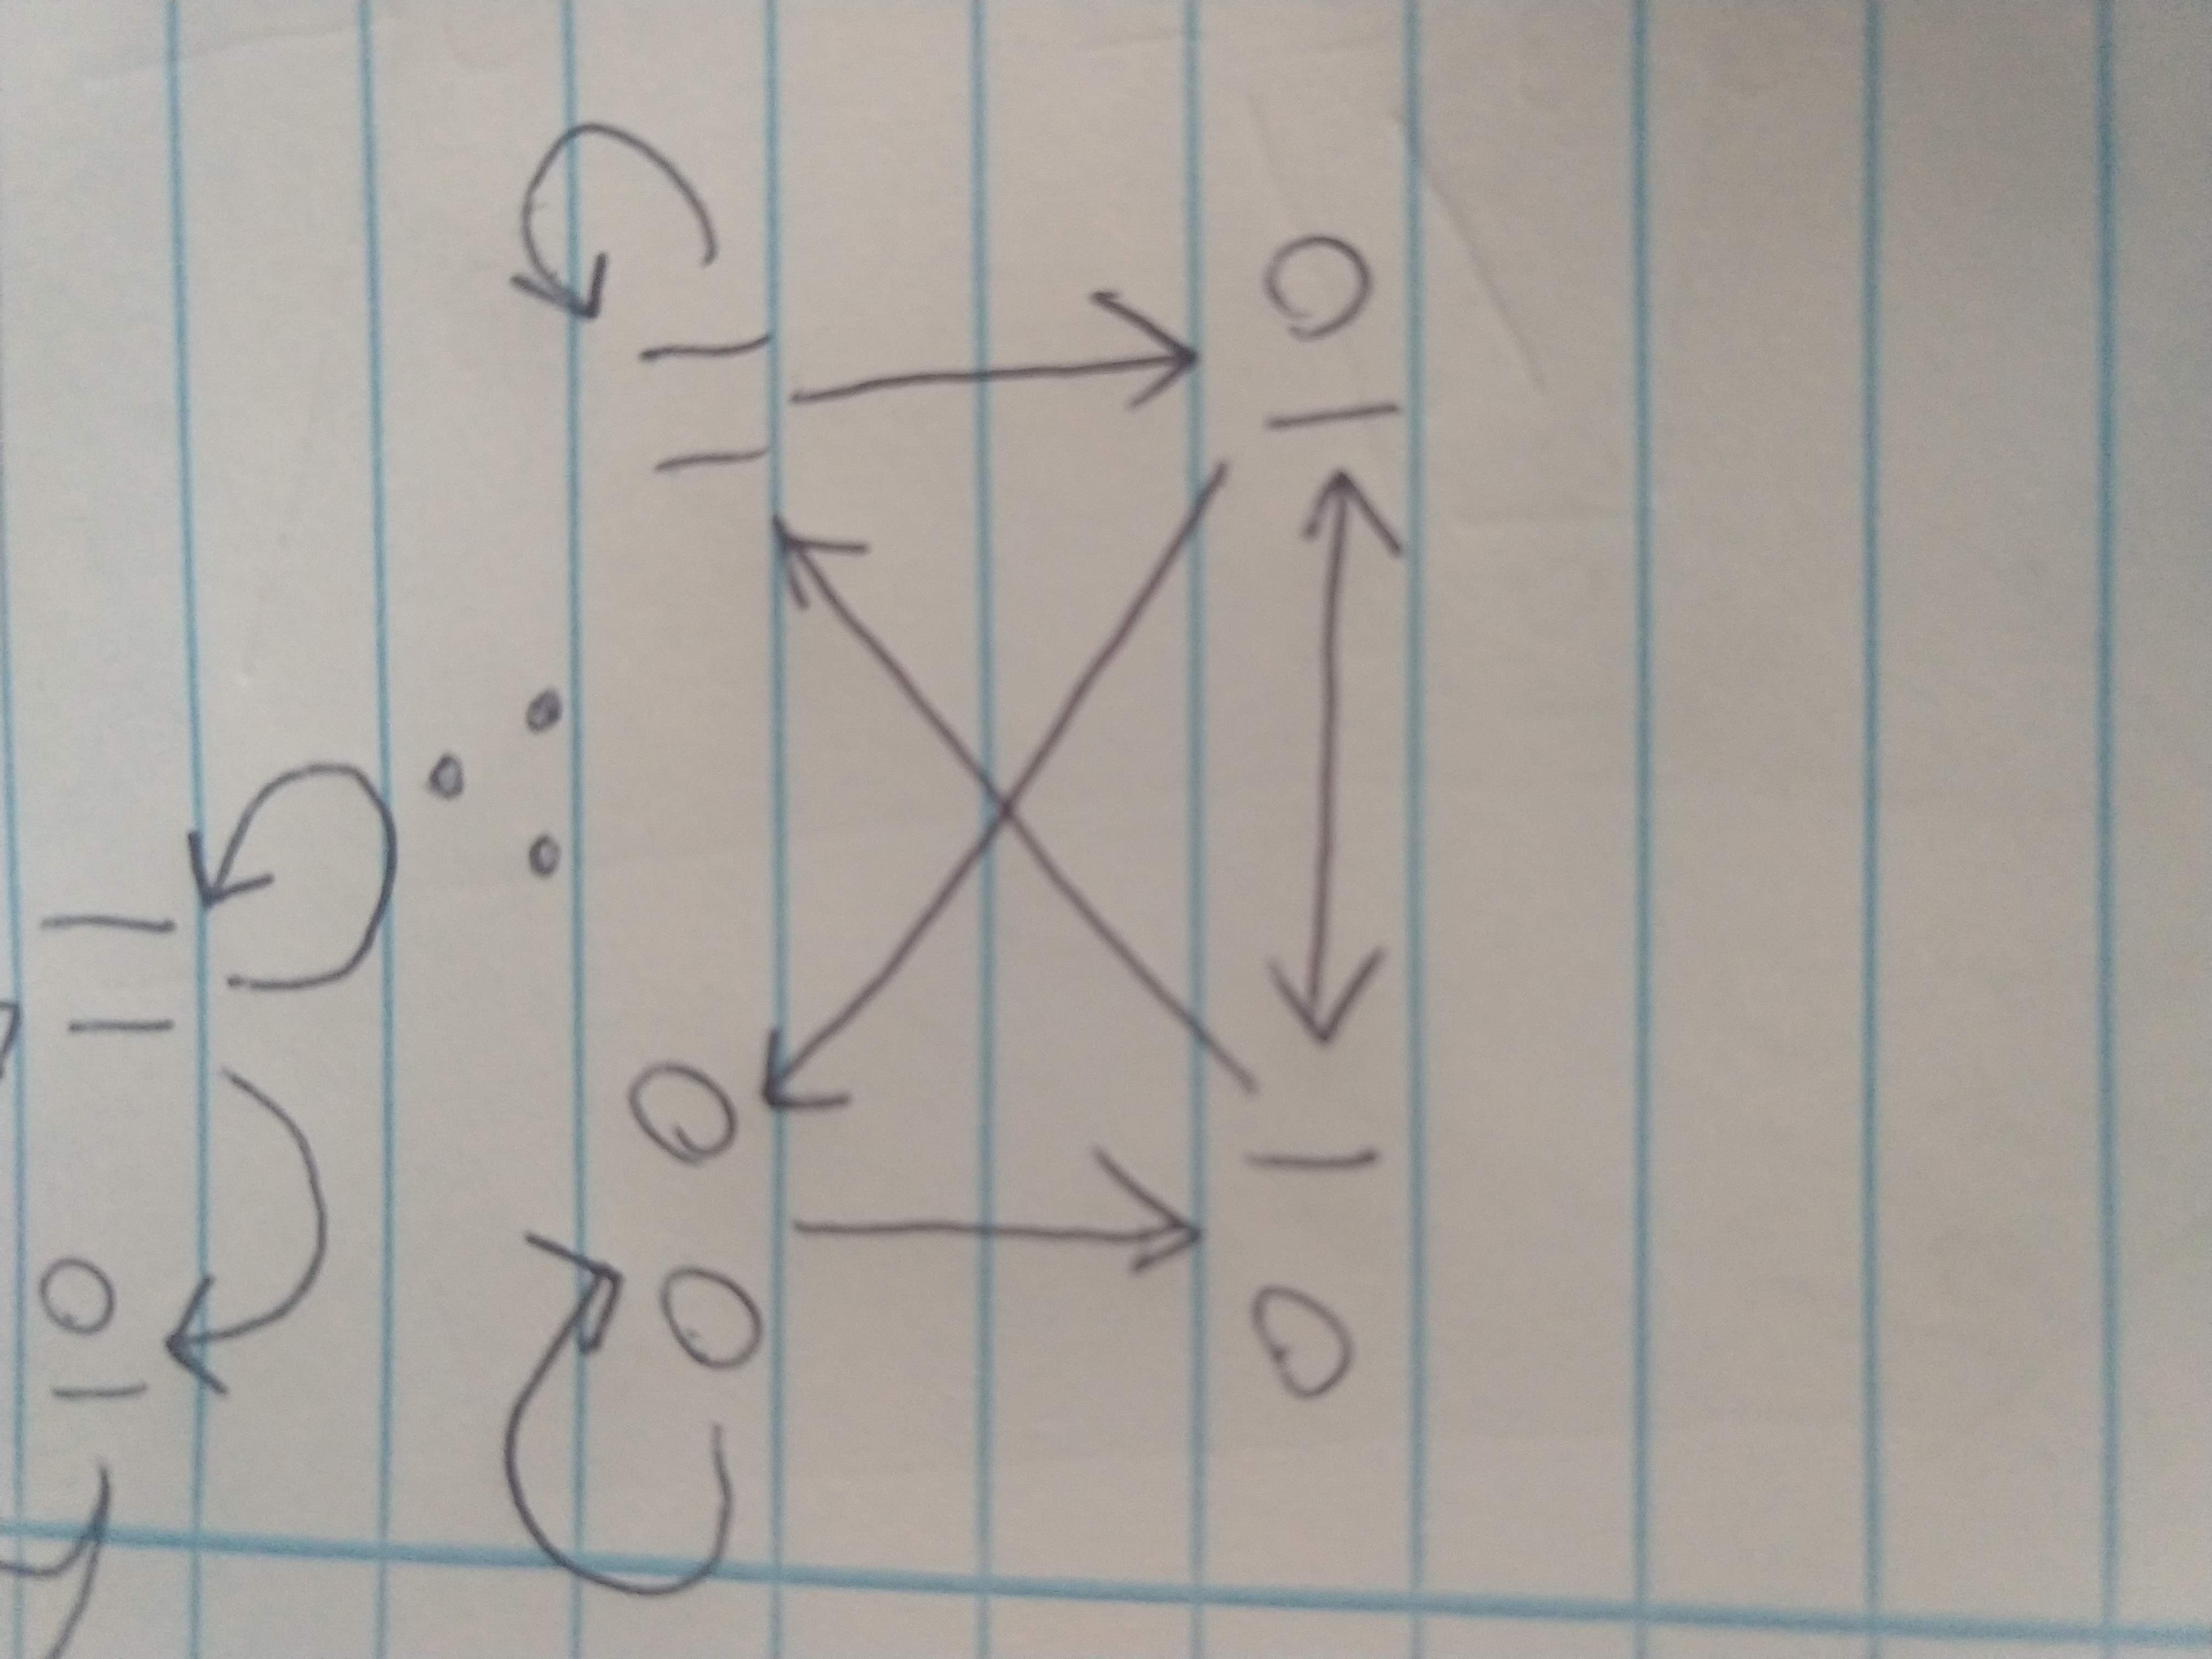 10 11
∴
00 11
01 10